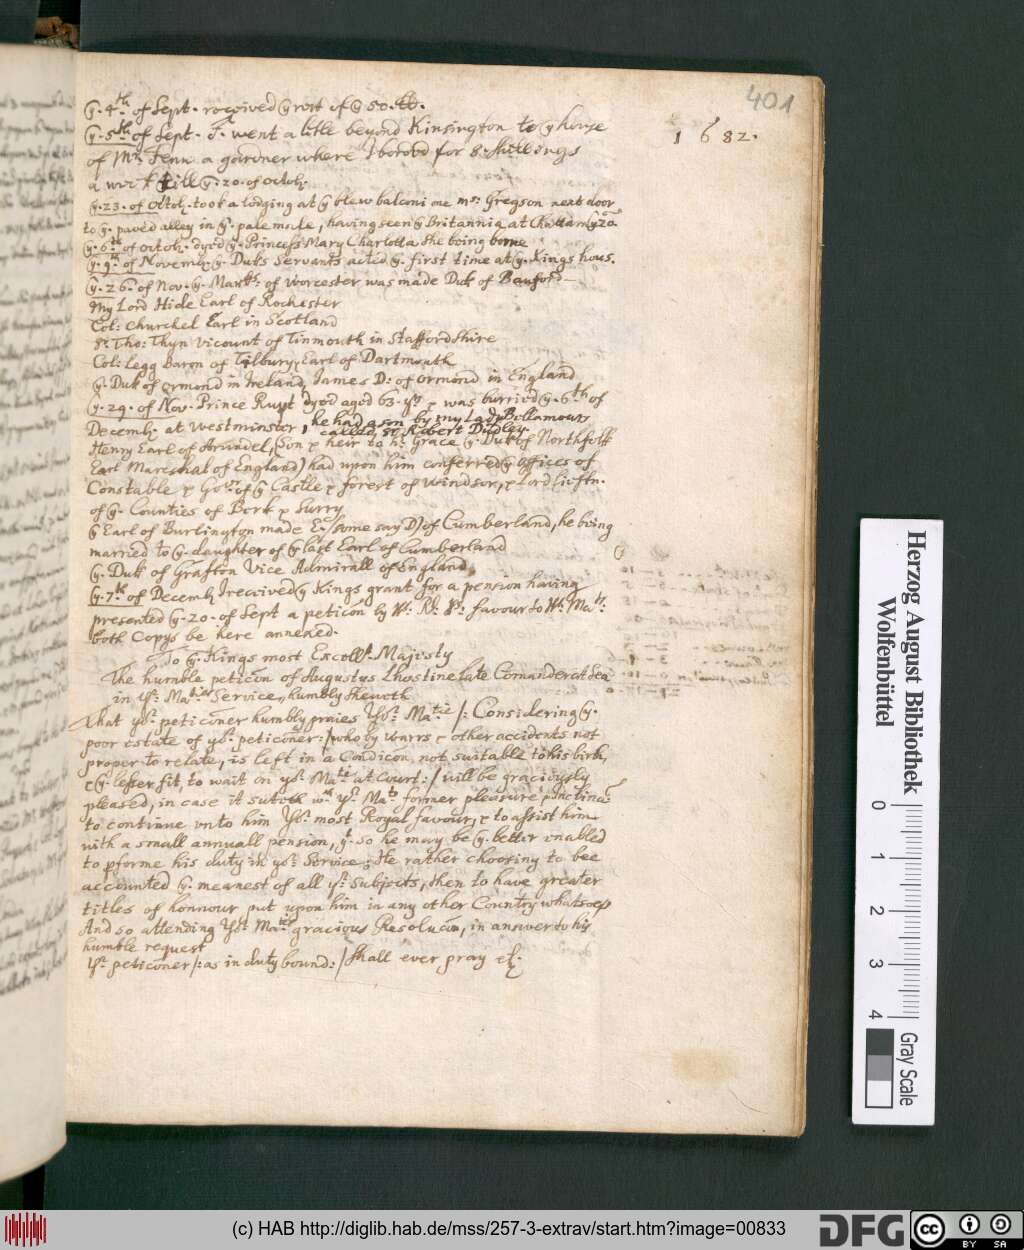 401
1682.
ÿ. 4th. of Sept. received ÿ rest of ÿ 50. lb.
ÿ. 5th of Sept. I. went a litle beyond Kinsington to ÿ house
of Mr. Fenn a gardner where I borded for 8. shillings
a week till ÿ. 20. of octob.
ÿ. 23. of octob. took a lodging at ÿ blew balconi one mrs. Gregson next door
to ÿ. paved alley in ÿ. pale male, having seen ÿ Britannia at Chattam ÿ 20.
ÿ. 6th of octob. dyed ÿ. Princess Mary Charlotta she being borne
ÿ. 9th of November ÿ. Duks servants acted ÿ. first time at ÿ. Kings hous.
ÿ. 26. of Nov. ÿ. Markis of worcester was made Duk of Bauford
My Lord Hide Earl of Rochester
Col: Churchel Earl in Scotland
Sr. Tho: Thyn vicount of Tinmouth in Staffordshire
Col: Legg Baron of Tilbury, Earl of Dartmouth
ÿ. Duk of ormond in Ireland, James D: of ormond in England
ÿ. 29. of Nov. Prince Rupt dyed aged 63. yrs & was burried ÿ. 6th of
Decemb. at westminster, he had a son by my Lady Bellamour
called, Sr Robert Dudley.
Henry Earl of Arundel, (Son & heir to hs. Grace ÿ. Duk of Northfolk
Earl Mareschal of England) had upon him conferred ÿ offices of
Constable & Gour. of ÿ Castle & forest of windsor, & Lord Lieftn.
of ÿ. Counties of Berk & Surry
ÿ Earl of Burlington made E. (some say D) of Cumberland, he being
married to ÿ. daughter of ÿ last Earl of Cumberland
ÿ. Duk of Grafton Vice Admirall of England
ÿ. 7th of Decemb. I received ÿ Kings grant for a pension having
presented ÿ. 20. of Sept a peticon by favour to Ma.ty:
both Copys be here annexed.
To ÿ. Kings most Excellt. Majesty
The humble peticon of Augustus Lhostine late Comander at Sea
in Yr. Maties Service, humbly sheweth
That yor. peticoner humbly praies Yor. Matie /: Considering ÿ.
poor estate of yor. peticoner: /who by warrs & other accidents not
proper to relate, is left in a Condicon, not suitable to his birth,
& ÿ. lesser fit, to wait on yor. Matie at Court: / will be graciously
pleased, in case it suteth wth yr Mats former pleasure
to continue vnto him Yor. most Royal favour, & to assist him
with a small annuall pension, yt. so he may be ÿ. better enabled
to pforme his duty in yor. Service; He rather choosing to bee
accounted ÿ. meanest of all yr. Subjects, then to have greater
titles of honnour put upon him in any other Country whatsoer
And so attending Yor. Maties gracious Resolucon, in answer to his
humble request
Yr. peticoner /: as in duty bound: / shall ever pray etc.
Herzog August Bibliothek
Wolfenbüttel
0 1 2 3 4
Gray Scale
(c) HAB http://diglib.hab.de/mss/257-3-extrav/start.htm?image=00833
DFG
CC BY SA